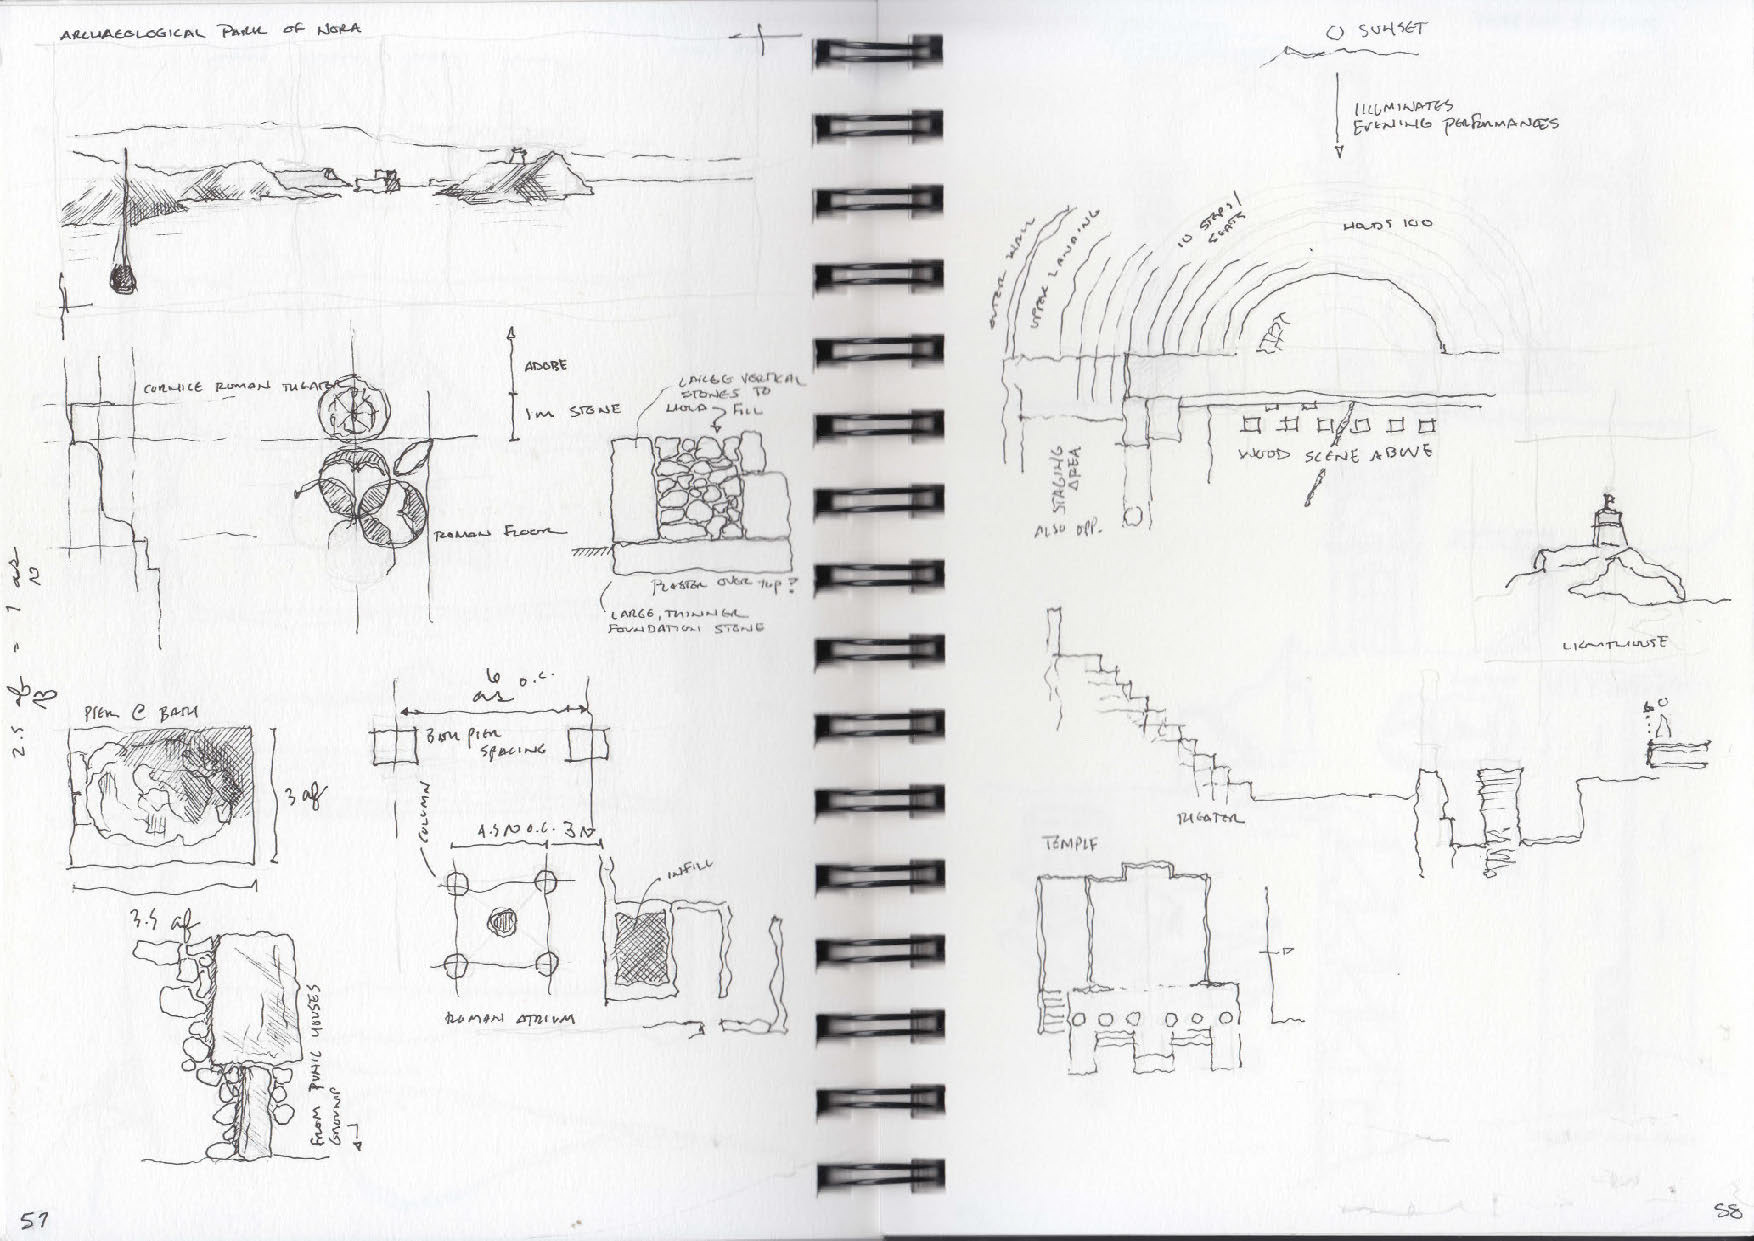 ARCHAEOLOGICAL PARK OF NORA
CORNICE ROMAN THEATER
ADOBE
1M STONE
LARGE VERTICAL
STONES TO
HOLD FILL
ROMAN FLOOR
PLASTER OVER TOP?
LARGE, THINNER
FOUNDATION STONE
PIER @ BATH
6 O.C.
BATH PIER
SPACING
COLUMN
4.5 N O.C. 3 N
INFILL
ROMAN ATRIUM
FROM PUNIC HOUSES
GROUND
57
SUNSET
ILLUMINATES
EVENING PERFORMANCES
OUTER WALL
UPPER LANDING
10 STEPS/
SEATS
HOLDS 100
STAGING
AREA
ALSO OPP.
WOOD SCENE ABOVE
LIGHTHOUSE
THEATER
TEMPLE
58